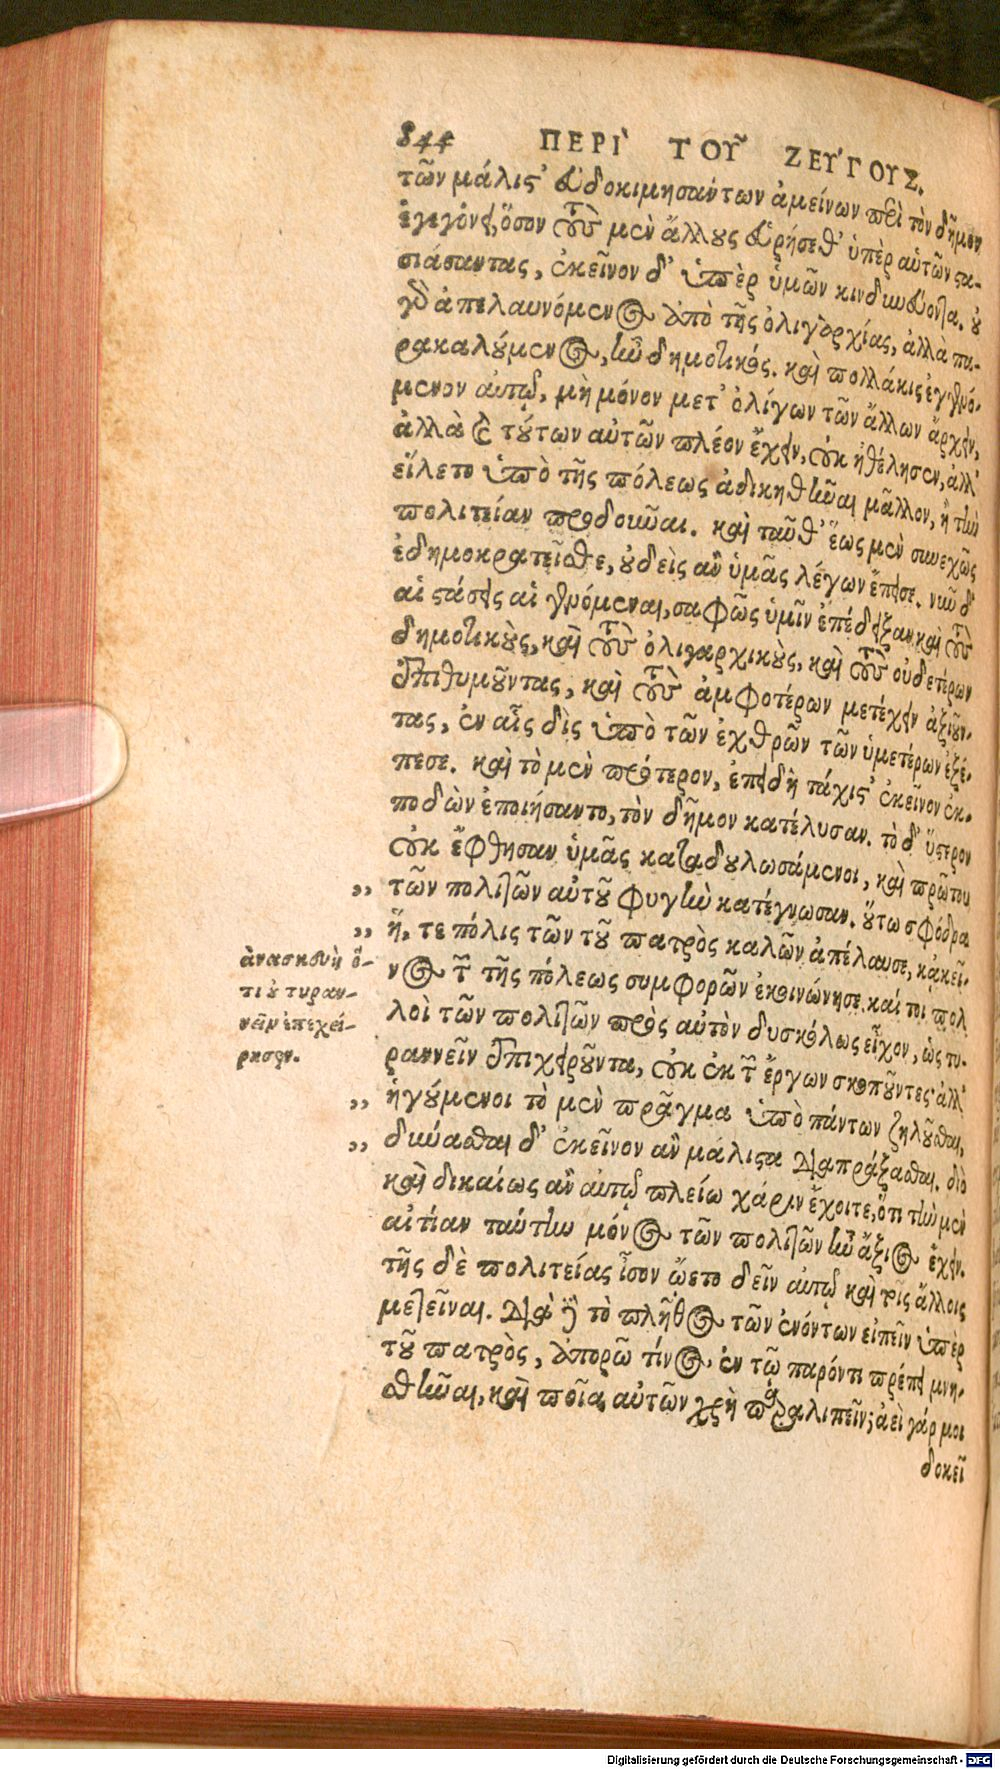 844 ΠΕΡῚ ΤΟΥ͂ ΖΕΎΓΟΥΣ.
τῶν μάλιστ’ εὐδοκιμησάντων ἀμείνων περὶ τὸν δῆμον
ἐγεγόνει, ὅσον τοὺς μὲν ἄλλους εὑρήσεθ’ ὑπὲρ αὑτῶν στα-
σιάσαντας, ἐκεῖνον δ’ ὑπὲρ ὑμῶν κινδυνεύοντα. οὐ
γὰρ ἀπελαυνόμενος ἀπὸ τῆς ὀλιγαρχίας, ἀλλὰ πα-
ρακαλούμενος, ἦν δημοτικός. καὶ πολλάκις ἐγγενό-
μενον αὐτῷ, μὴ μόνον μετ’ ὀλίγων τῶν ἄλλων ἄρχειν,
ἀλλὰ καὶ τούτων αὐτῶν πλέον ἔχειν, οὐκ ἠθέλησεν, ἀλλ’
εἵλετο ὑπὸ τῆς πόλεως ἀδικηθῆναι μᾶλλον, ἢ τὴν
πολιτείαν προδοῦναι. καὶ ταῦθ’ ἕως μὲν συνεχῶς
ἐδημοκρατεῖσθε, οὐδεὶς ἂν ὑμᾶς λέγων ἔπεισε. νῦν δ’
αἱ στάσεις αἱ γενόμεναι, σαφῶς ὑμῖν ἐπέδειξαν καὶ τοὺς
δημοτικοὺς, καὶ τοὺς ὀλιγαρχικοὺς, καὶ τοὺς οὐδετέρων
ἐπιθυμοῦντας, καὶ τοὺς ἀμφοτέρων μετέχειν ἀξιοῦν-
τας, ἐν αἷς δὶς ὑπὸ τῶν ἐχθρῶν τῶν ὑμετέρων ἐξέ-
πεσε. καὶ τὸ μὲν πρότερον, ἐπειδὴ τάχιστ’ ἐκεῖνον ἐκ-
ποδὼν ἐποιήσαντο, τὸν δῆμον κατέλυσαν. τὸ δ’ ὕστερον
οὐκ ἔφθησαν ὑμᾶς καταδουλωσάμενοι, καὶ πρώτου
„ τῶν πολιτῶν αὐτοῦ φυγὴν κατέγνωσαν. οὕτω σφόδρα
„ ἥ, τε πόλις τῶν τοῦ πατρὸς καλῶν ἀπέλαυσε, κἀκεῖ-
νος τῶν τῆς πόλεως συμφορῶν ἐκοινώνησε. καί τοι πολ
λοὶ τῶν πολιτῶν πρὸς αὐτὸν δυσκόλως εἶχον, ὡς τυ-
ραννεῖν ἐπιχειροῦντα, οὐκ ἐκ τῶν ἔργων σκοποῦντες· ἀλλ’
„ ἡγούμενοι τὸ μὲν πρᾶγμα ὑπὸ πάντων ζηλοῦσθαι,
„ δύνασθαι δ’ ἐκεῖνον ἂν μάλιστα διαπράξασθαι. διὸ
καὶ δικαίως ἂν αὐτῷ πλείω χάριν ἔχοιτε, ὅτι τὴν μὲν
αἰτίαν ταύτην μόνος τῶν πολιτῶν ἦν ἄξιος ἔχειν.
τῆς δὲ πολιτείας ἶσον ᾤετο δεῖν αὐτῷ καὶ τοῖς ἄλλοις
μετεῖναι. Διὰ δὲ τὸ πλῆθος τῶν ἐνόντων εἰπεῖν ὑπὲρ
τοῦ πατρὸς, ἀπορῶ τίνος ἐν τῷ παρόντι πρέπει μνη-
σθῆναι, καὶ ποῖα αὐτῶν χρὴ παραλιπεῖν; ἀεὶ γάρ μοι
δοκεῖ
ἀνασκευὴ ὅ-
τι οὐ τυραν-
νεῖν ἐπεχεί-
ρησεν.
Digitalisierung gefördert durch die Deutsche Forschungsgemeinschaft - DFG